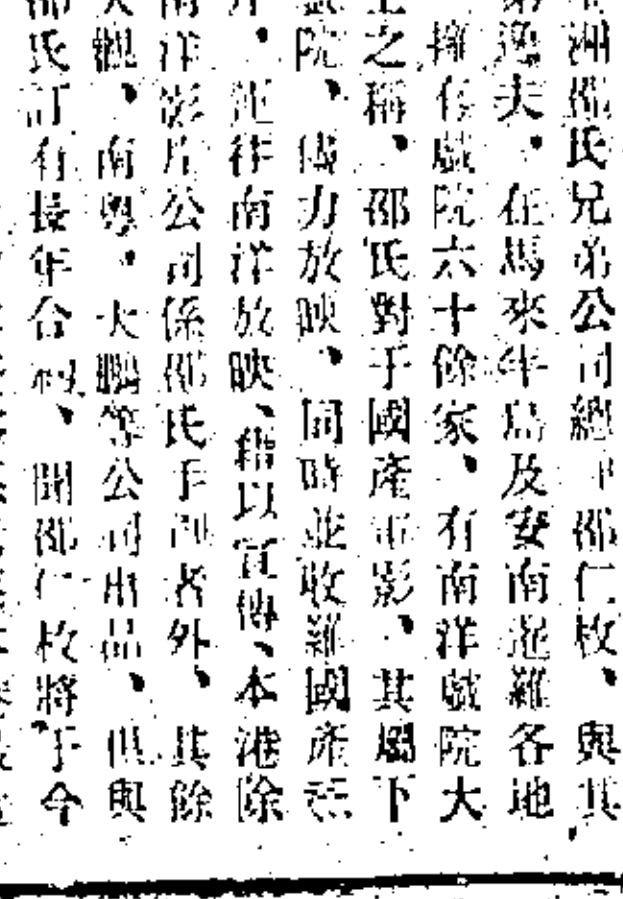 洲邵氏兄弟公司總理邵仁枚、與其
弟逸夫、在馬來半島及安南暹羅各地
擁有戲院六十餘家、有南洋戲院大
王之稱、邵氏對于國產電影、其屬下
戲院、傾力放映、同時並收羅國產
片、運往南洋放映、藉以宣傳、本港除
南洋影片公司係邵氏手創者外、其餘
大觀、南粵、大鵬等公司出品、俱與
邵氏訂有長年合約、聞邵仁枚將于今